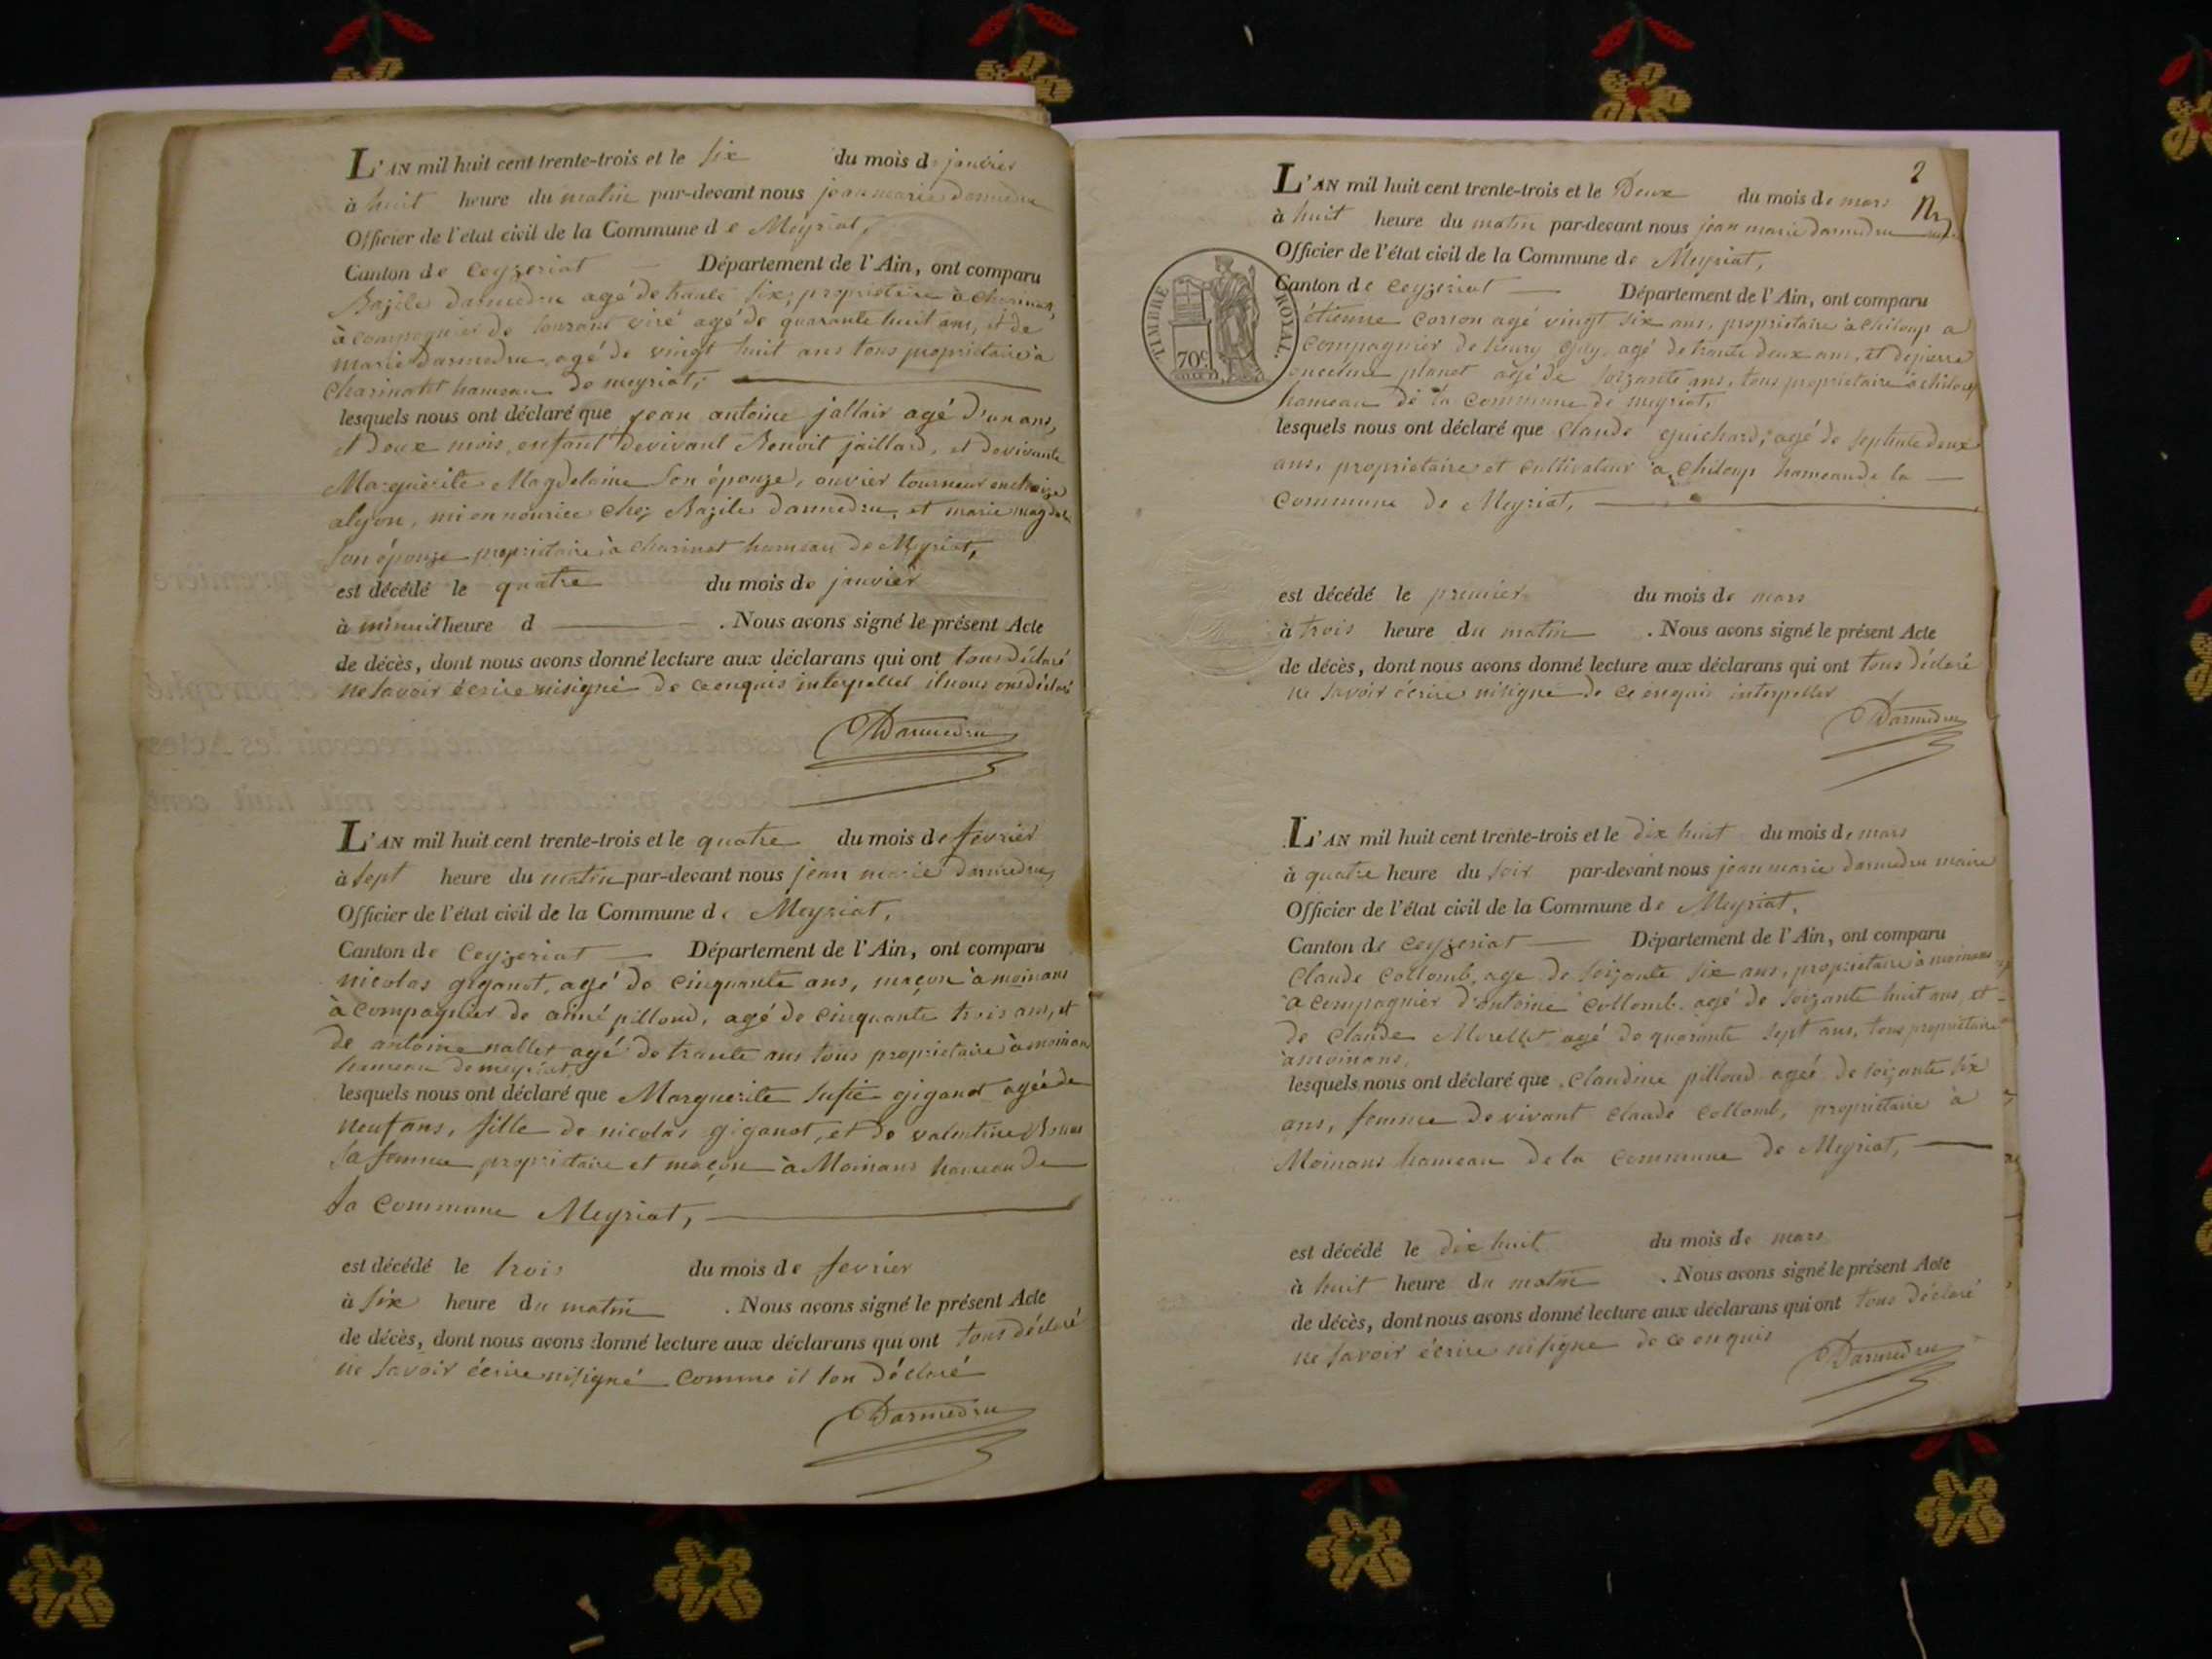 L'AN mil huit cent trente-trois et le six du mois d janvier
à huit heure du matin par-devant nous jean marie darmedru
Officier de l'état civil de la Commune de Meyriat,
Canton de ceyzeriat Département de l'Ain, ont comparu
Bazile darmedru agé de trante six, propriétaire à
à compagnier de agé de quarante huit ans, et de
marie darmedru agé de vingt huit ans tous propriétaire à
charinatt hameau de meyriat,
lesquels nous ont déclaré que jean antoine jallair agé d'un ans,
et deux mois, enfant devivant Benoit jaillard, et devivante
Marguerite Magdelaine son épouze, ouvrier tourneur en
alyon, mi en nourice chez Bazile darmedru, et marie
son épouze propriétaire à charinat hameau de Meyriat,
est décédé le quatre du mois de janvier
à minuit heure d . Nous avons signé le présent Acte
de décès, dont nous avons donné lecture aux déclarans qui ont tous déclaré
ne savoir écrire ni signé de ce enquis interpellet il nous ons déclaré
Darmedru
L'AN mil huit cent trente-trois et le quatre du mois de fevrier
à sept heure du matin par-devant nous jean marie darmedru
Officier de l'état civil de la Commune de Meyriat,
Canton de Ceyzeriat Département de l'Ain, ont comparu
nicolas giganot, agé de cinquante ans, maçon à moinans
à compagnier de aimé pilloud, agé de cinquante trois ans, et
de antoine nallet agé de trante ans tous propriétaire à moinans
hameau de meyriat,
lesquels nous ont déclaré que Marguerite giganot agée de
neuf ans, fille de nicolas giganot, et de valentine
sa femme propriétaire et maçon à Moinans hameau de
la commune Meyriat,
est décédé le trois du mois de fevrier
à six heure du matin . Nous avons signé le présent Acte
de décès, dont nous avons donné lecture aux déclarans qui ont tous déclaré
ne savoir écrire ni signé comme il lon déclaré
Darmedru
2
L'AN mil huit cent trente-trois et le Deux du mois de mars
à huit heure du matin par-devant nous jean marie darmedru
Officier de l'état civil de la Commune de Meyriat,
Canton de ceyzeriat Département de l'Ain, ont comparu
TIMBRE ROYAL.
70c
étienne corron agé vingt six ans, propriétaire à chiloup a
compagnier de heury guy agé de trante deux ans, et de pierre
planet agé de soizante ans, tous propriétaire à chiloup
hameau de la commune de meyriat,
lesquels nous ont déclaré que Claude guichard, agé de septente deux
ans, propriétaire et cultivateur à chiloup hameau de la
commune de Meyriat,
est décédé le premier du mois de mars
à trois heure du matin . Nous avons signé le présent Acte
de décès, dont nous avons donné lecture aux déclarans qui ont tous déclaré
ne savoir écrire ni signé de ce enquis interpeller
Darmedru
L'AN mil huit cent trente-trois et le dix huit du mois de mars
à quatre heure du soir par-devant nous jean marie darmedru maire
Officier de l'état civil de la Commune de Meyriat,
Canton de ceyzeriat Département de l'Ain, ont comparu
Claude collomb, agé de soizante six ans, propriétaire à moinans
à compagnier d'antoine collomb agé de soizante huit ans, et
de Claude Morellet agé de quarante sept ans, tous propriétaire
à moinans,
lesquels nous ont déclaré que Claudine pilloud agée de soizante six
ans, femme devivant claude collomb, propriétaire à
Moinans hameau de la commune de Meyriat,
est décédé le dix huit du mois de mars
à huit heure du matin . Nous avons signé le présent Acte
de décès, dont nous avons donné lecture aux déclarans qui ont tous déclaré
ne savoir écrire ni signé de ce enquis
Darmedru